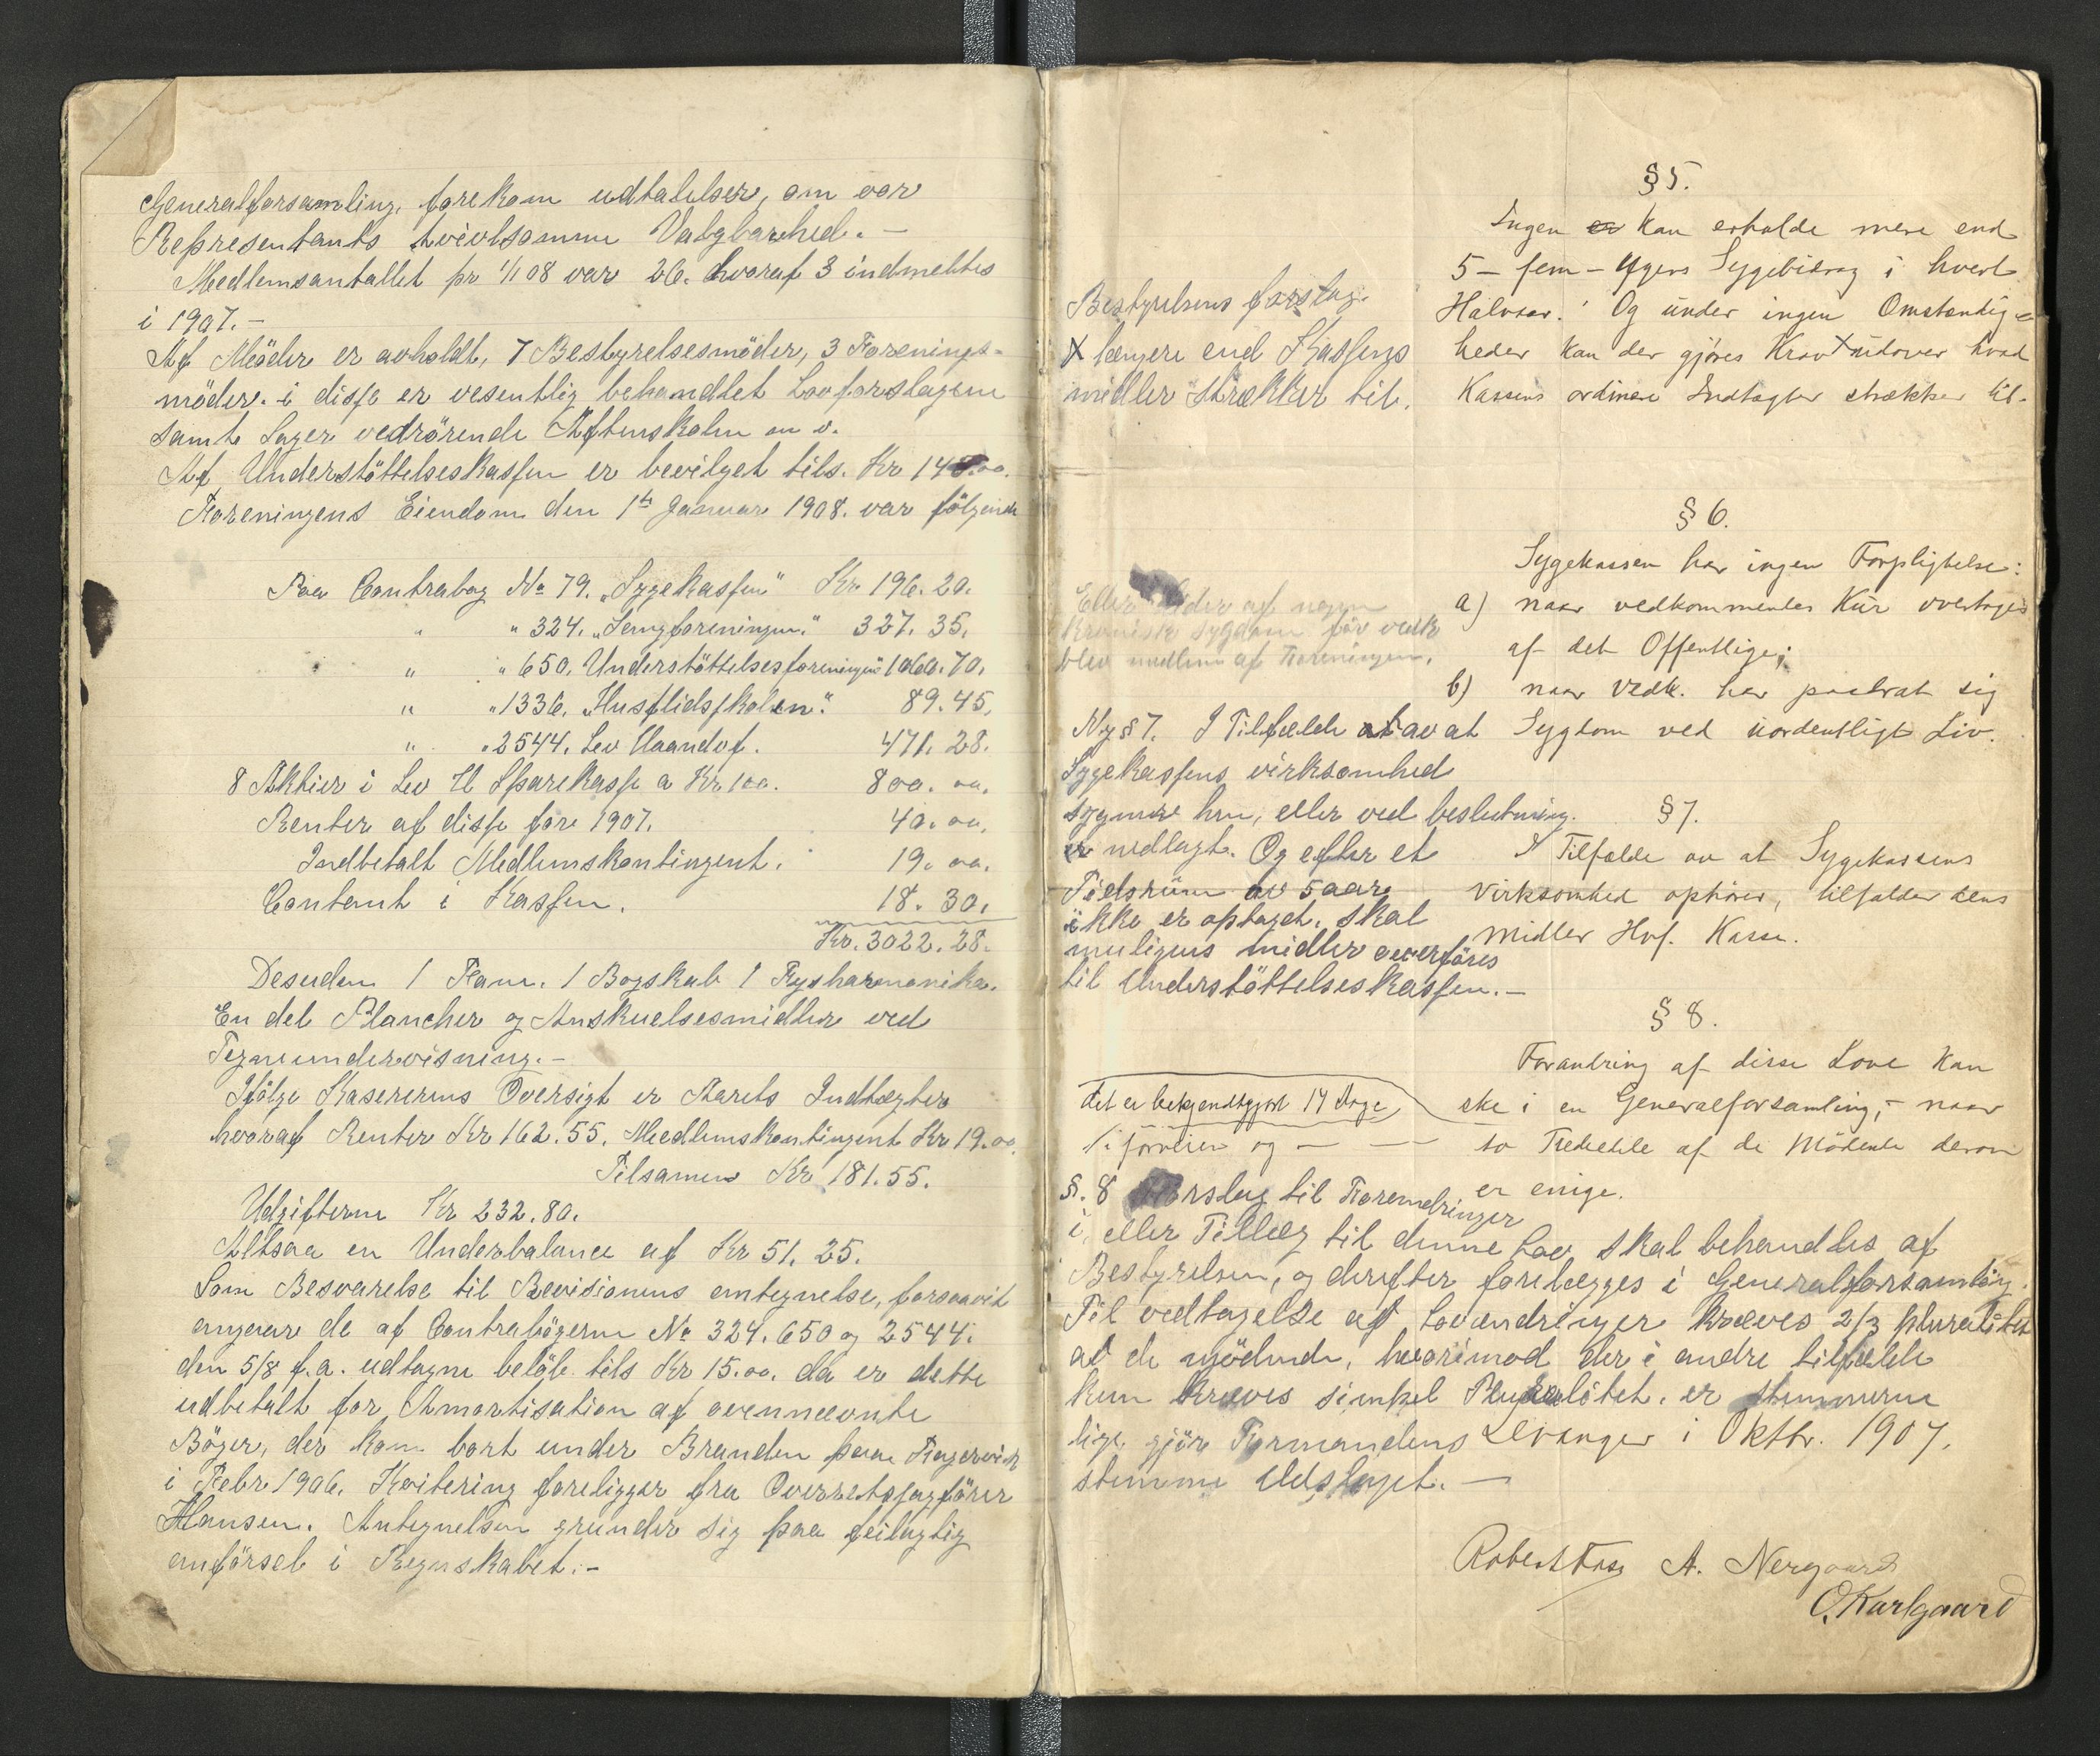 Generalforsamling, forekom udtalelser, om vor
Representants tvivlsomme Valgbarhed. –
Medlemsantallet pr 1/1 08 var 26. hvoraf 3 indmeltes
i 1907. –
Af Möder er avholdt, 7 Bestyrelsesmöder, 3 Forenings-
möder. i disse er vesentlig behandlet Lovforslagene
samt Sager vedrörende Aftenskolen m v.
Af Understöttelseskassen er bevilget tils. Kr
Foreningens Eiendom den 1ste Januar 1908. var fölgende
Paa Contrabog No 79. „Sygekassen" Kr 196. 20.
" " 324. „Sangforeningen." 327. 35.
" " 650. Understöttelsesforeningen" 1060. 70.
" " 1336. „Husflidsskolen". 89. 45.
" " 2544. Lev Haandvf. 471. 28.
8 Aktier i Lev H Sparekasse a Kr 100. 800. 00.
Renter af disse fore 1907. 40. 00.
Indbetalt Medlemskontingent. 19. 00.
Contant i Kassen. 18. 30.
Kr. 3022. 28.
Desuden 1 Fane. 1 Bogskab 1 Fysharmonika.
En del Plancher og Anskuelsesmidler ved
Tegneundervisning. –
Ifölge Kasererens Oversigt er Aarets Indtægter
hvoraf Renter Kr 162. 55. Medlemskontingent Kr 19. 00.
Tilsamen Kr 181. 55.
Udgifterne Kr 232. 80.
Altsaa en Underbalance af Kr 51. 25.
Som Besvarelse til Revisionens antegnelse, forsaavidt
angaar de af Contrabögerne No 324. 650 og 2544.
den 5/8 f.a. udtagne belöb tils Kr 15. 00. da er dette
udbetalt for Amortisation af ovennævnte
Böger, der kom bort under Branden paa
i Febr 1906. Kvitering foreligger fra Overretssagförer
Hansen. Antegnelsen grunder sig paa feilagtig
anförsel i Regnskabet. –
§ 5.
Ingen er kan erholde mere end
5 – fem – Ugers Sygebidrag i hvert
Halvaar. Og under ingen Omstændig-
heder kan der gjöres Krav x udover hvad
Kassens ordinære Indtægter strækker til.
Bestyrelsens forslag.
x længere end Kassens
midler strækker til.
§ 6.
Sygekassen har ingen Forpligtelse:
a) naar vedkommendes Kur overtages
af det Offentlige;
b) naar vedk. har paadrat sig
Sygdom ved uordentligt Liv.
Eller lider af nogen
kronisk sygdom för vedk
blev medlem af Foreningen.
Ny § 7. I Tilfælde af av at
Sygekassens virksomhed
eller ved beslutning.
er nedlagt. Og efter et
Tidsrum av 5 aar
ikke er optaget. skal
muligens midler overföres
til Understöttelseskassen. –
§ 7.
I Tilfælde av at Sygekassens
Virksomhed ophörer, tilfalder dens
Midler Hvf. Kasse.
§ 8.
Forandring af disse Love kan
ske i en Generalforsamling, – naar
to Trediedele af de Mödende derom
er enige.
det er bekjendtgjort 14 Dage
i forveien og –
§. 8 Forslag til Forendringer
i, eller Tillæg til denne Lov, skal behandles af
Bestyrelsen, og derefter forelægges i Generalforsamling.
Til vedtagelse af Lovendringer kræves 2/3 pluralitet
af de mödende, hvorimod der i andre tilfælde
kun kræves simpel Pluralitet. er stemmerne
lige gjör Formandens
stemme Udslaget. –
Levanger i Oktbr. 1907.
A. Nergaard
O. Karlgaard